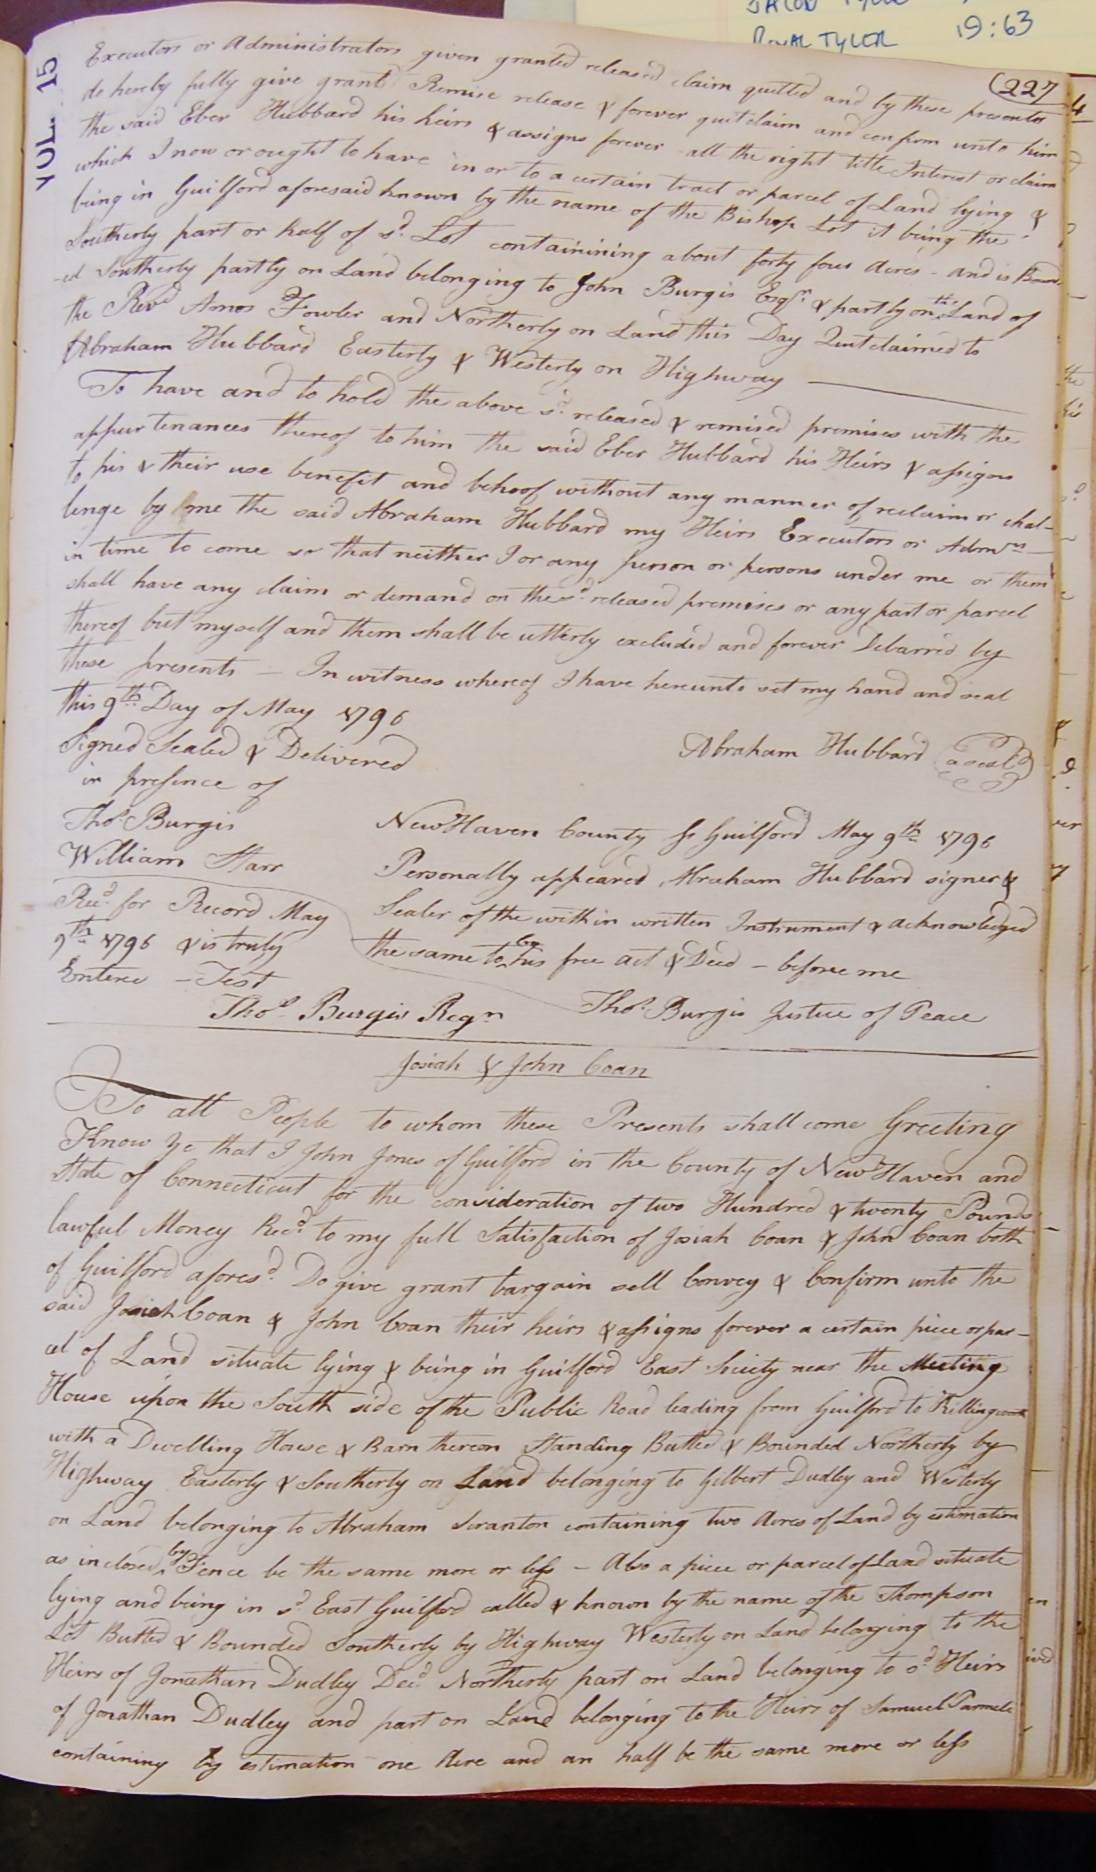 JACOB TYLER
ROYAL TYLER 19:63
VOL. 15
(227
Executors or Administrators given granted released claim quitted and by these presents
do hereby fully give grant Remise release & forever quitclaim and confirm unto him
the said Eber Hubbard his heirs & assigns forever all the right title Interest or claim
which I now or ought to have in or to a certain tract or parcel of Land lying &
being in Guilford aforesaid known by the name of the Bishop Lot it being the
Southerly part or half of sd. Lot containining about forty four Acres - and is Bound
-ed Southerly partly on Land belonging to John Burgis Esqr. & partly on the Land of
the Revd Amos Fowler and Northerly on Land this Day Quitclaimed to
Abraham Hubbard Easterly & Westerly on Highway
To have and to hold the above sd. released & remised premises with the
appurtenances thereof to him the said Eber Hubbard his Heirs & assigns
to his & their use benefit and behoof without any manner of reclaim or chal-
lenge by me the said Abraham Hubbard my Heirs Executors or Admrs
in time to come so that neither I or any person or persons under me or them
shall have any claim or demand on the sd. released premises or any part or parcel
thereof but myself and them shall be utterly excluded and forever Debarred by
these presents - In witness whereof I have hereunto set my hand and seal
this 9th Day of May 1796
Signed Sealed & Delivered Abraham Hubbard a seal
in presence of
Thos. Burgis New Haven County Ss Guilford May 9th 1796
William Starr Personally appeared Abraham Hubbard signer &
Recd. for Record May Sealer of the within written Instrument & acknowledged
9th 1796 & is truly the same to be his free act & Deed - before me
Entered - Test
Thos. Burgis Regr Thos. Burgis Justice of Peace
Josiah & John Coan
To all People to whom these Presents shall come Greeting
Know Ye that I John Jones of Guilford in the County of New Haven and
State of Connecticut for the consideration of two Hundred & twenty Pounds
lawful Money Recd. to my full Satisfaction of Josiah Coan & John Coan both
of Guilford aforesd. Do give grant bargain sell Convey & Confirm unto the
said Josiah Coan & John Coan their heirs & assigns forever a certain piece or par-
cel of Land situate lying & being in Guilford East Society near the Meeting
House upon the South side of the Public Road leading from Guilford to Killingworth
with a Dwelling House & Barn thereon Standing Butted & Bounded Northerly by
Highway Easterly & Southerly on Land belonging to Gilbert Dudley and Westerly
on Land belonging to Abraham Scranton containing two Acres of Land by estimation
as inclosed by Fence be the same more or less - Also a piece or parcel of Land situate
lying and being in sd. East Guilford called & known by the name of the Thompson
Lot Butted & Bounded Southerly by Highway Westerly on Land belonging to the
Heirs of Jonathan Dudley Decd. Northerly part on Land belonging to sd Heirs
of Jonathan Dudley and part on Land belonging to the Heirs of Samuel Parmele
containing by estimation one Acre and an half be the same more or less